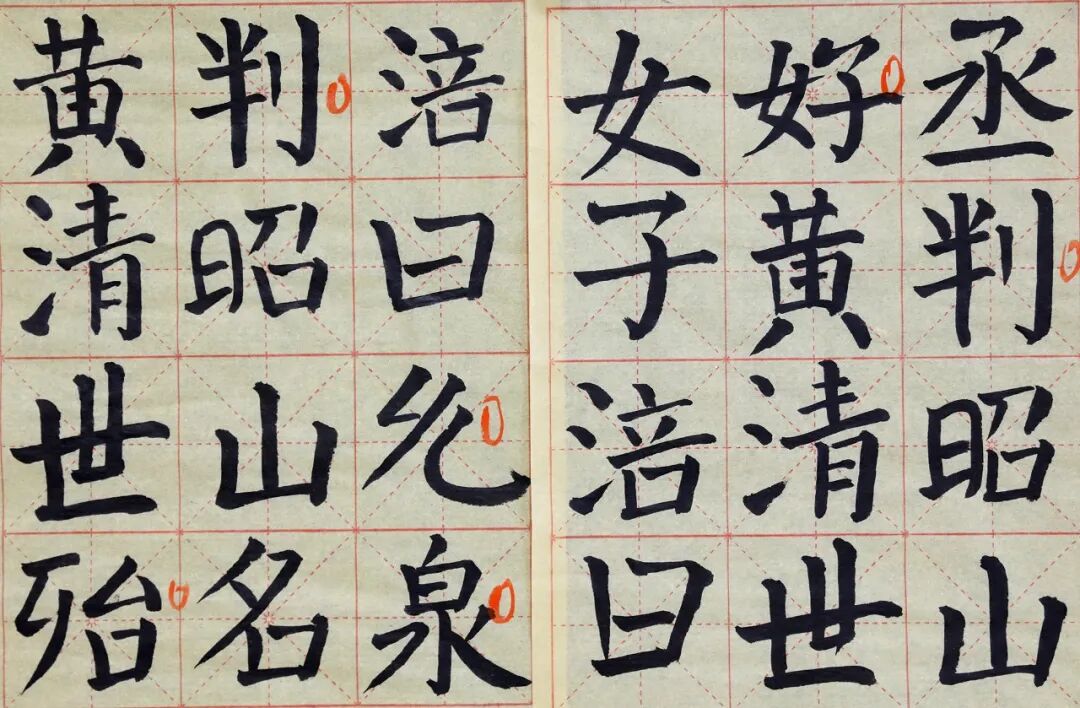 黄判涪
清昭曰
世山
殆名泉
女好丞
子黄判
涪清昭
曰世山